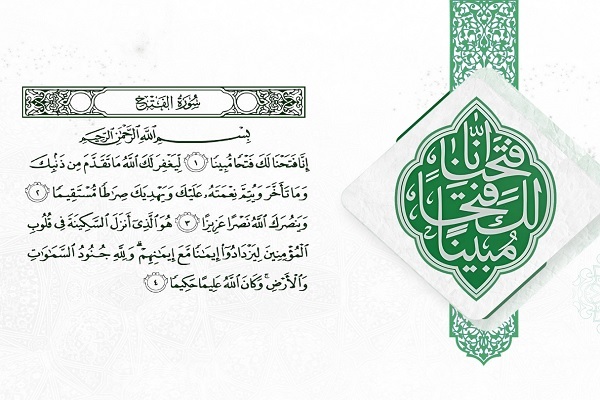 سُورَةُ الفَتۡحِ
بِسۡمِ ٱللَّهِ ٱلرَّحۡمَٰنِ ٱلرَّحِيمِ
إِنَّا فَتَحۡنَا لَكَ فَتۡحٗا مُّبِينٗا ١ لِّيَغۡفِرَ لَكَ ٱللَّهُ مَا تَقَدَّمَ مِن ذَنۢبِكَ
وَمَا تَأَخَّرَ وَيُتِمَّ نِعۡمَتَهُۥ عَلَيۡكَ وَيَهۡدِيَكَ صِرَٰطٗا مُّسۡتَقِيمٗا ٢
وَيَنصُرَكَ ٱللَّهُ نَصۡرًا عَزِيزًا ٣ هُوَ ٱلَّذِيٓ أَنزَلَ ٱلسَّكِينَةَ فِي قُلُوبِ
ٱلۡمُؤۡمِنِينَ لِيَزۡدَادُوٓاْ إِيمَٰنٗا مَّعَ إِيمَٰنِهِمۡۗ وَلِلَّهِ جُنُودُ ٱلسَّمَٰوَٰتِ
وَٱلۡأَرۡضِۚ وَكَانَ ٱللَّهُ عَلِيمًا حَكِيمٗا ٤
إِنَّا فَتَحۡنَا
لَكَ فَتۡحًا
مُبِينًا